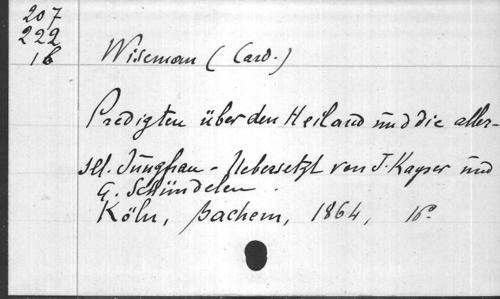 207
222
16
Wiseman (Card.)
Predigten über den Heiland und die aller-
sel. Jungfrau - Uebersetzt von J. Kayser und
G. Schündelen.
Köln, Bachem, 1864, 16°